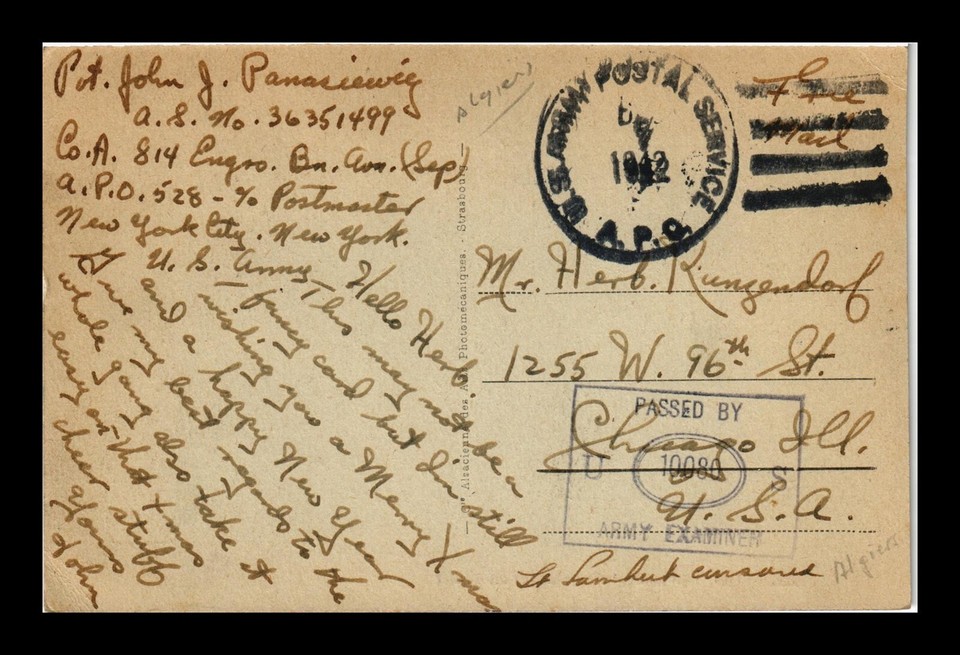 Pvt. John J. Panasiewicz
A.S. No. 36351499
Co. A. 814 Engrs. Bn. Avn. (Sep)
A.P.O. 528 - c/o Postmaster
New York City. New York.
U. S. Army
Hello Herb,
This may not be a
fancy card but I'm still
wishing you a Merry Xmas
and a happy New Year
Give my best regards to the
whole gang also take it
easy on that Xmas
cheer stuff
Yours
John
Algiers
Alsacienne des Arts Photomécaniques. - Strasbourg
U.S. ARMY POSTAL SERVICE
1942
A.P.O.
Free
Mail
Mr. Herb. Kunzendorf
1255 W. 96th St.
Chicago Ill.
U. S. A.
PASSED BY
U 10080 S
ARMY EXAMINER
Lt Lambert censored
Algiers